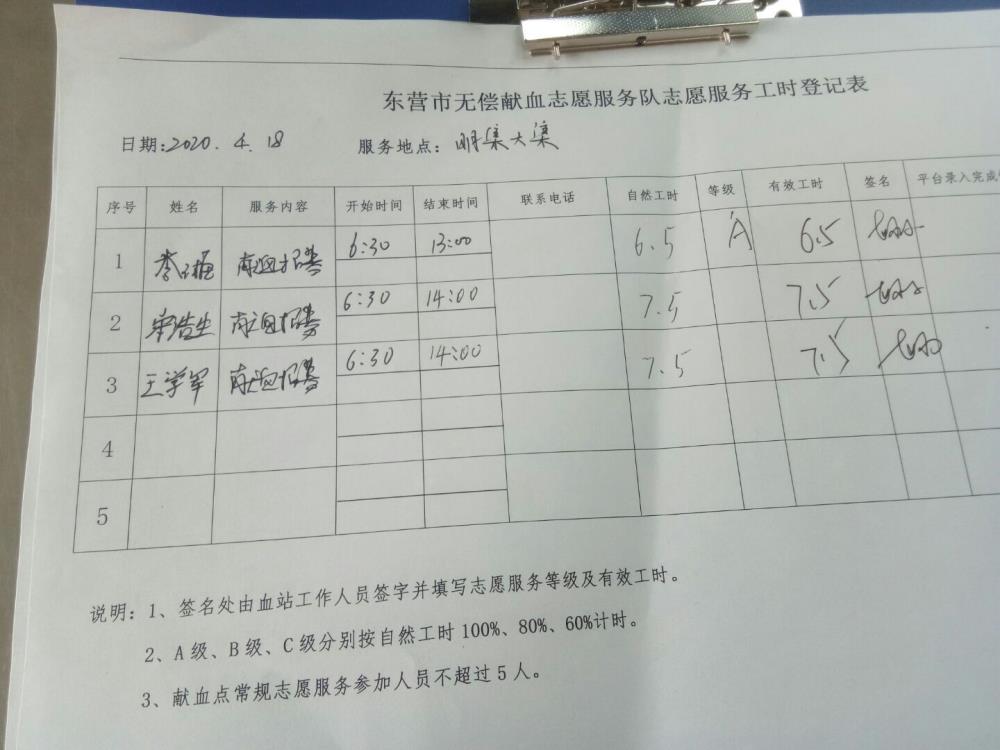 东营市无偿献血志愿服务队志愿服务工时登记表
日期:2020.4.18 服务地点: 明集大集
序号 姓名 服务内容 开始时间 结束时间 联系电话 自然工时 等级 有效工时 签名 平台录入完成
1 献血招募 6:30 13:00 6.5 A 6.5
2 献血招募 6:30 14:00 7.5 7.5
3 王学军 献血招募 6:30 14:00 7.5 7.5
4
5
说明: 1、签名处由血站工作人员签字并填写志愿服务等级及有效工时。
2、A级、B级、C级分别按自然工时100%、80%、60%计时。
3、献血点常规志愿服务参加人员不超过5人。